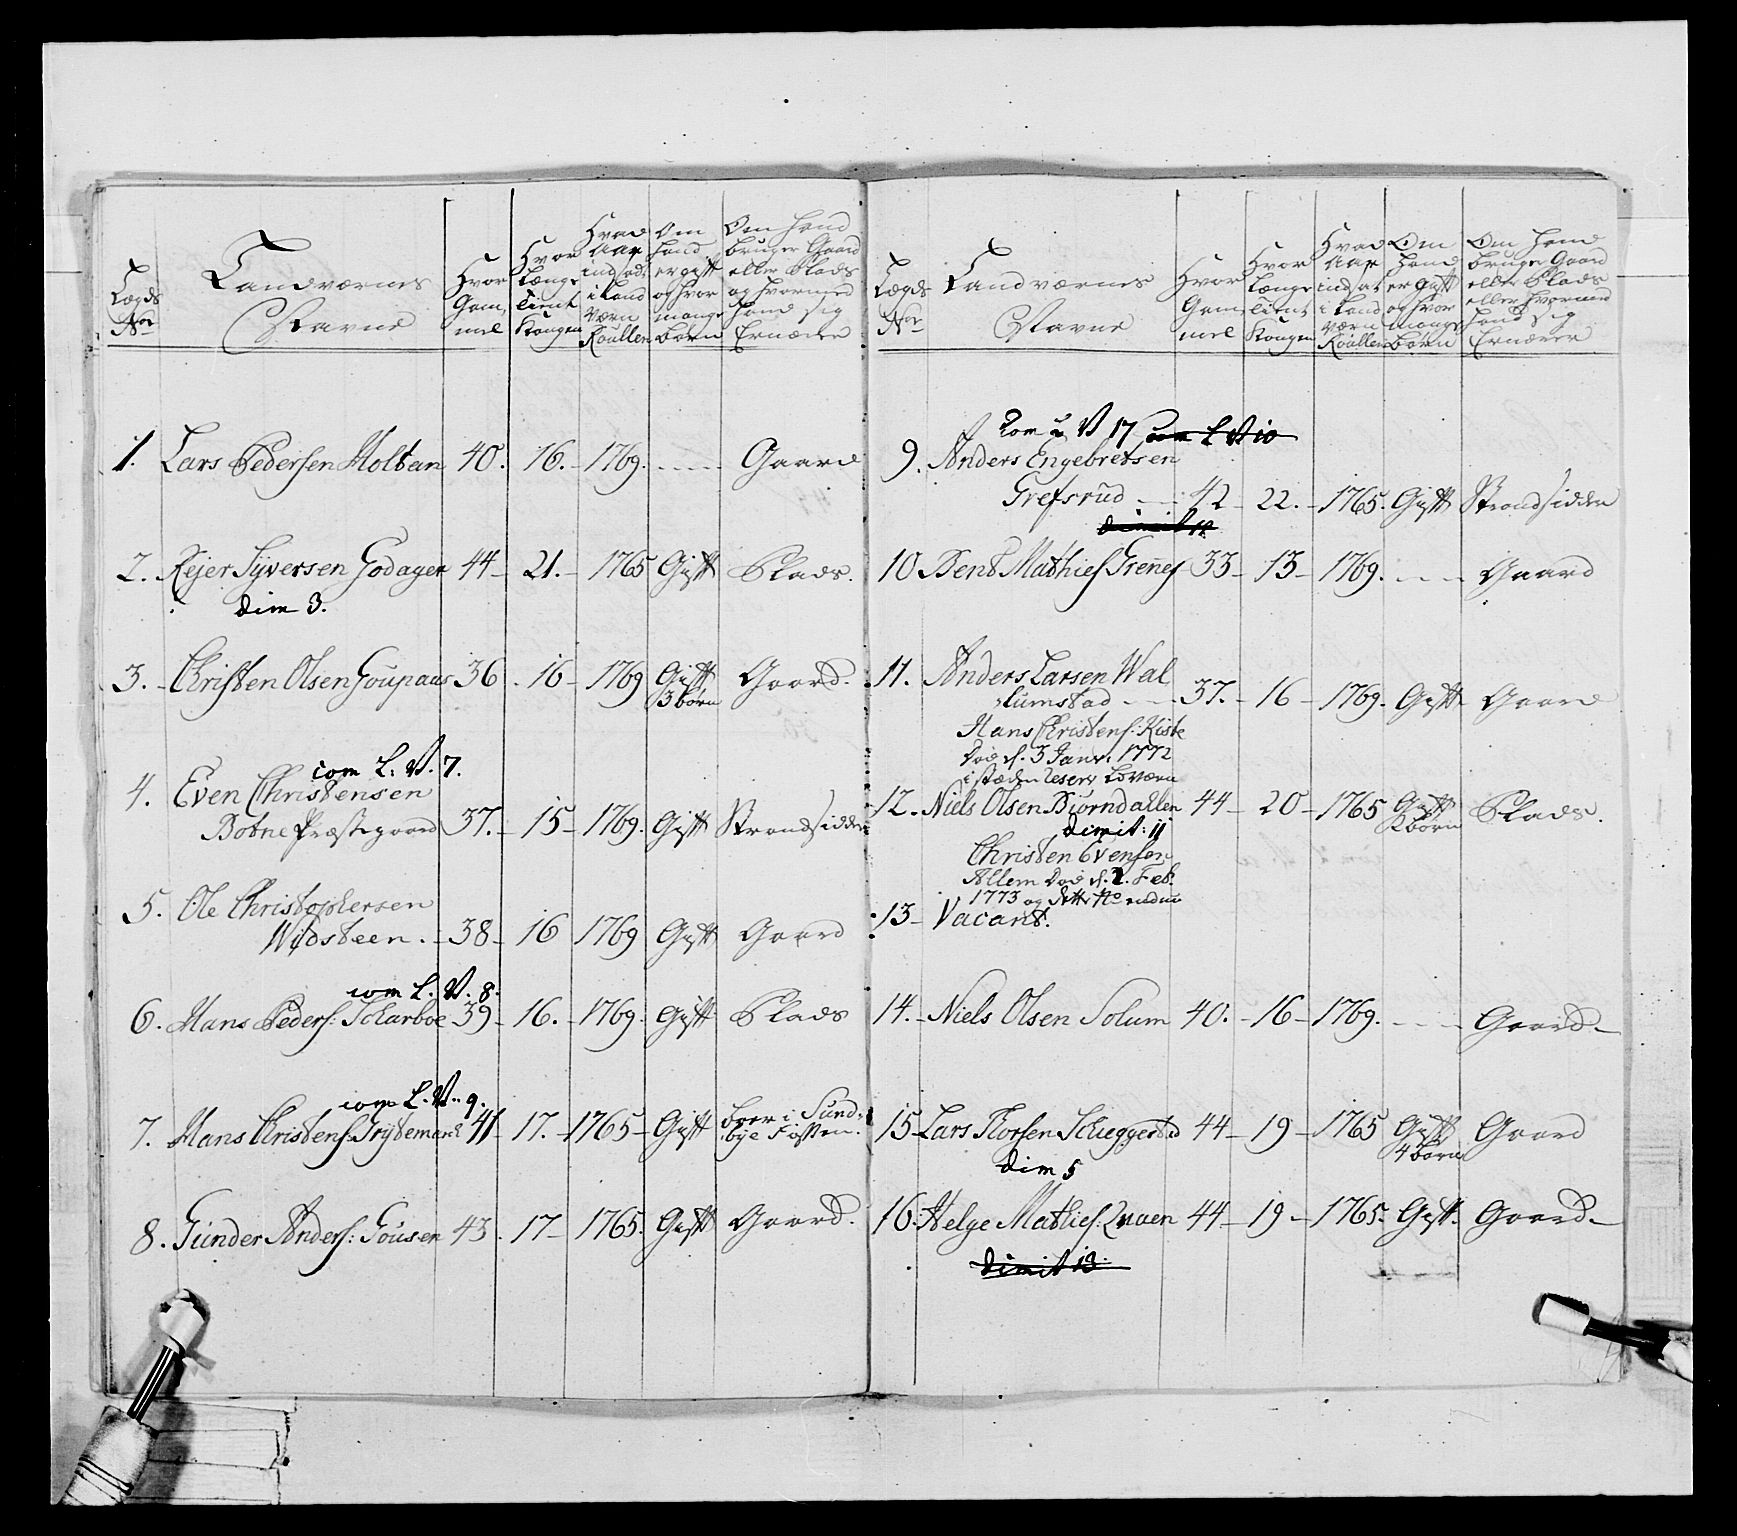 Lægds No:
Landværnes Navne
Hvor Gam mel
Hvor længe tient Kongen
Hvad Aar ind sadt i Land Værn Roullen
Om hand er gift og hvor mange børn
Om hand bruger Gaard eller Plads og hvormed hand sig Ernærer
1. Lars Pedersen Holtan 40. 16. 1769. Gaard
2. Rejer Syversen Godager 44 21. 1765 Gift Plads.
dim 3.
3. Christen Olsen Goupaas 36 16 1769 Gift 3 børn Gaard.
com L: V. 7.
4. Even Christensen
Botne Præstegaard 37. 15 1769. Gift Strandsidder
5. Ole Christophersen
Widsteen. 38 16 1769 Gift Gaard
com L. V. 8.
6. Hans Peders: Scharboe 39 16. 1769. Gift Plads
com L. V. 9.
7. Hans Christens: Grytemark 41 17. 1765 Gift boer i Sund bye Fossen.
8. Gunder Anders: Gousen 43. 17 1765. Gift Gaard.
Lægds No:
Landværnes Navne
Hvor Gam mel
Hvor længe tient Kongen
Hvad Aar ind sat i Land Værn Roullen
Om hand er gift og hvor mange børn
Om hand bruger Gaard eller Plads eller hvormed hand sig Ernærer
Com L V 17 com L V 10
9. Anders Engebretsen
Grefsrud 42 22. 1765. Gift Strandsidder
dimit 12
10 Bent Mathies Grenes 33 13 1769. Gaard
11. Anders Larsen Wal
lumstad 37. 16 1769. Gift Gaard
Hans Christens: Kiste
Død d. 3 Janv. 1772
i stæden reserv Lværn
12. Niels Olsen Biørndallen 44 20 1765 Gift 2 børn Plads.
dimit: 11
Christen Evensen
Allem Død d. 2. Feb.
1773 og dette No endnu
13 Vacant.
14. Niels Olsen Solum 40. 16 1769. Gaard
15 Lars Thorsen Scheggestad 44 19 1765 Gift 4 børn Gaard
dim 5
16. Helge Mathies. Qvaen 44 19 1765. Gift. Gaard
dimit 13.